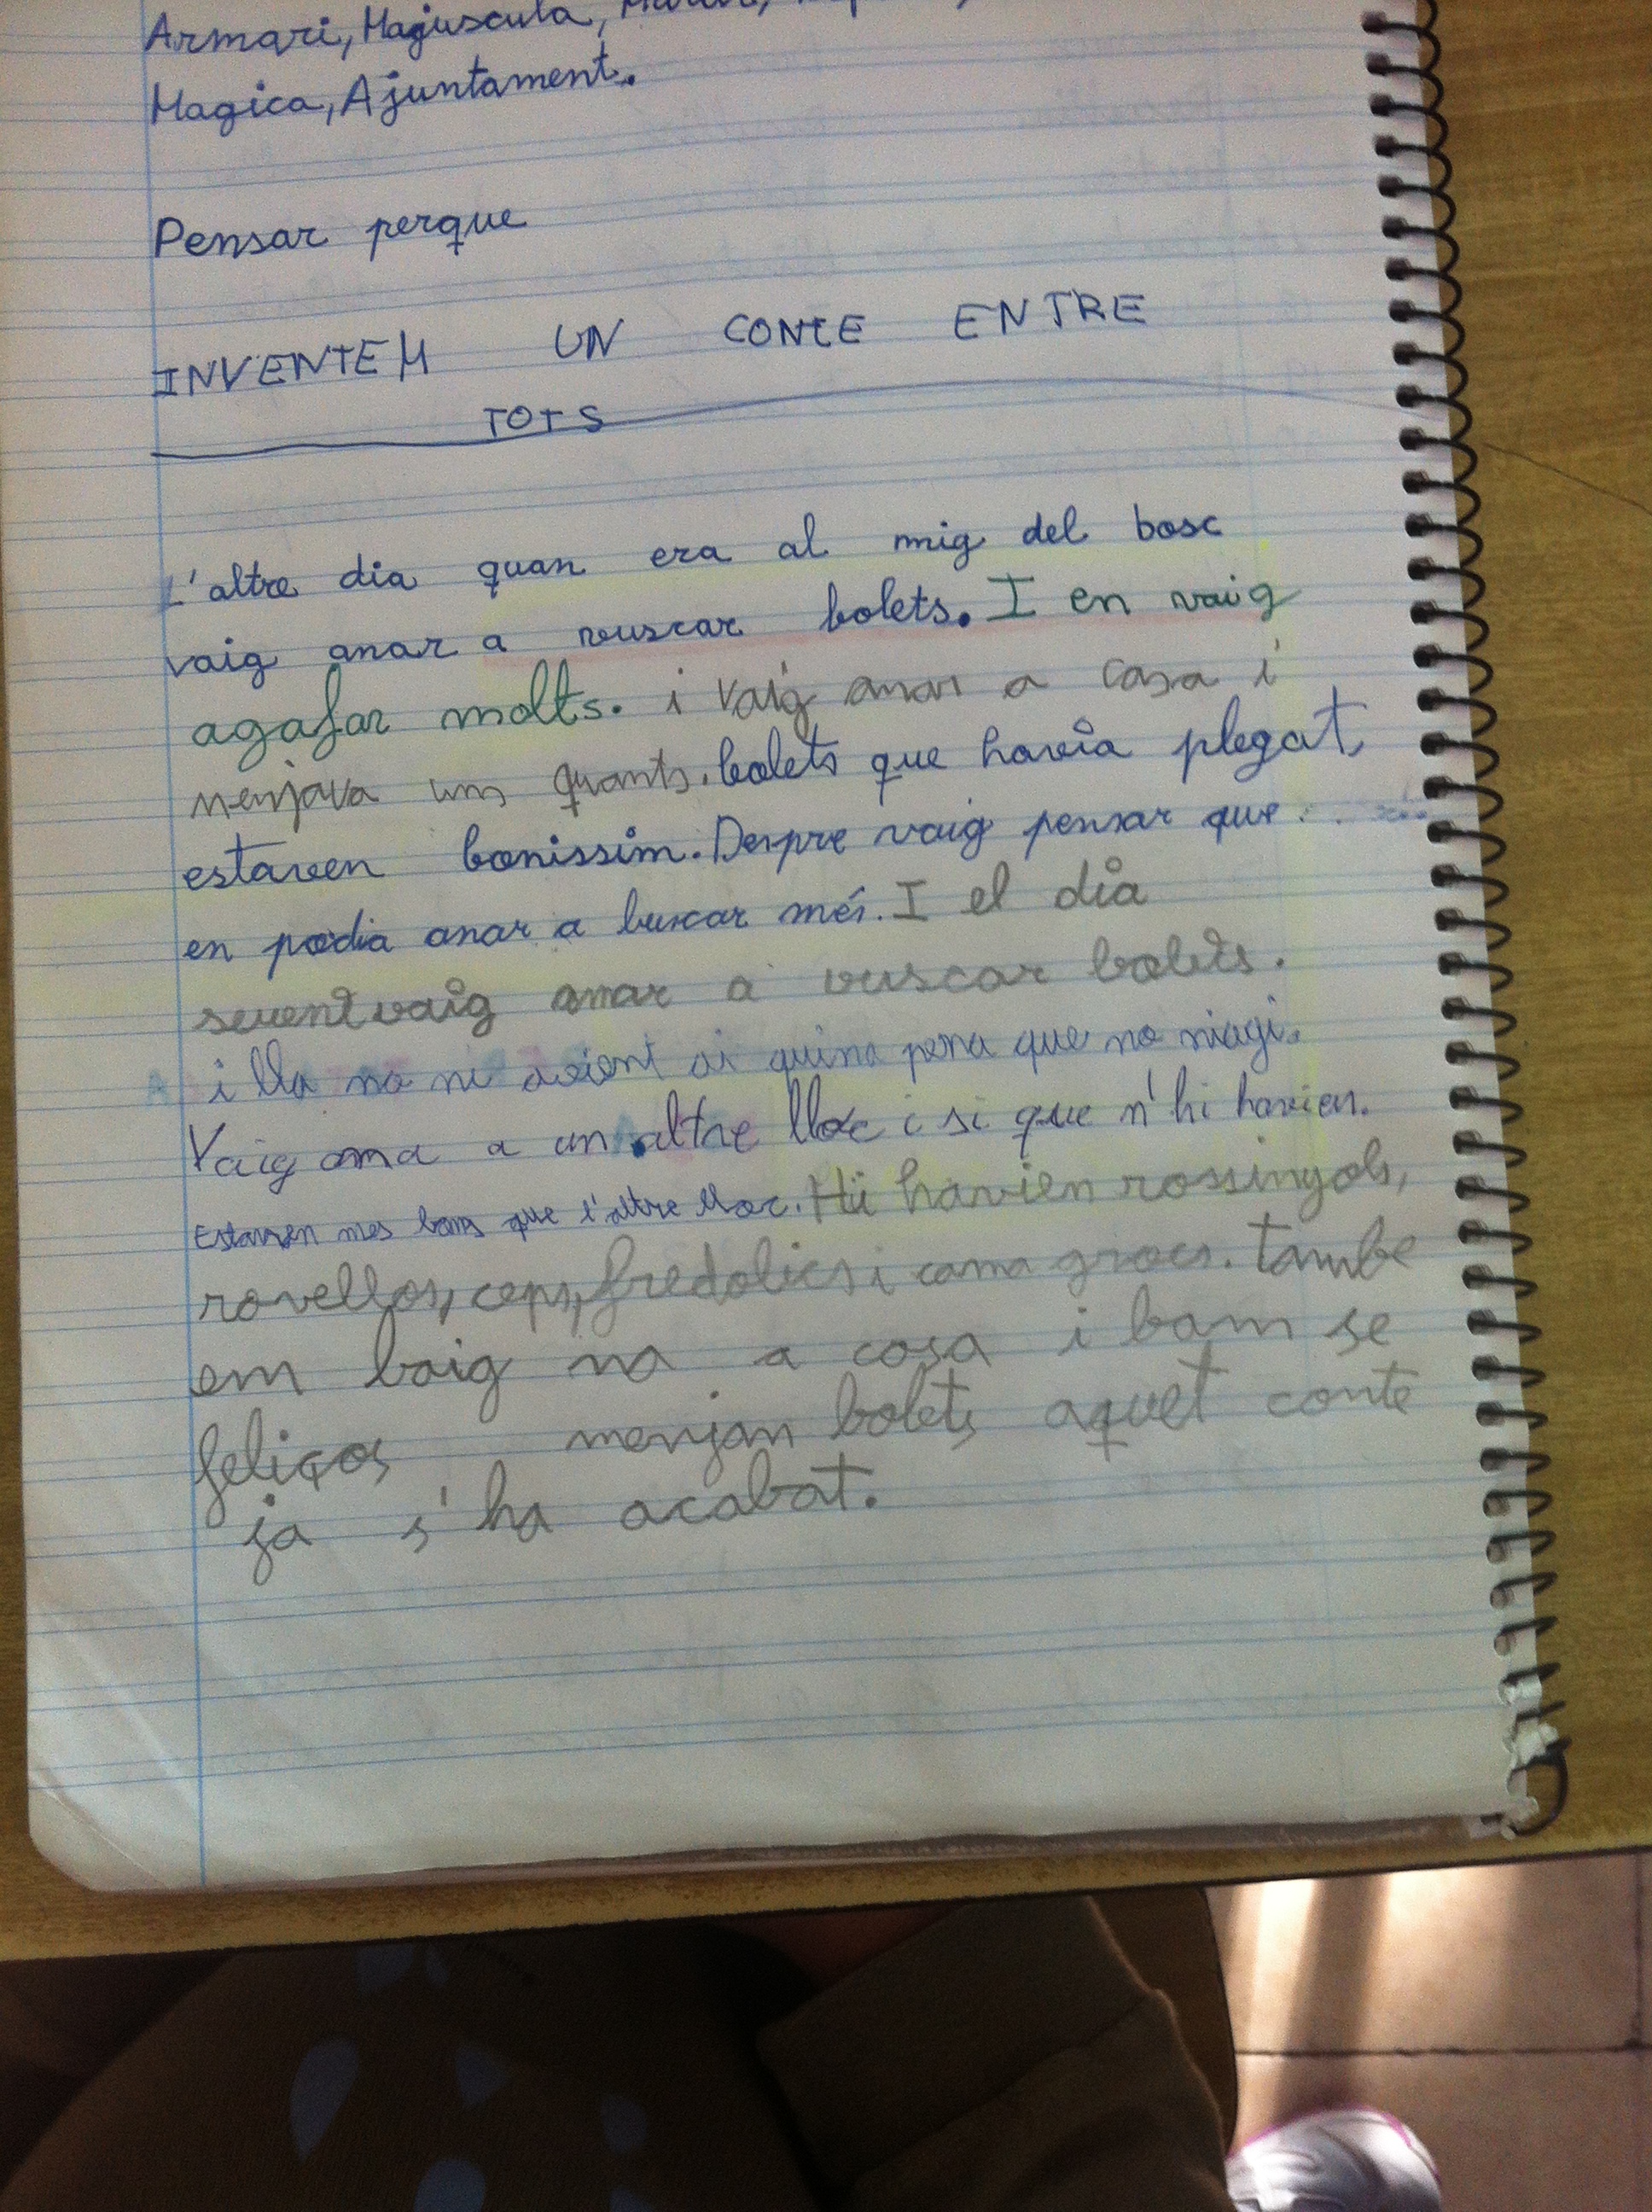 Armari, Majuscula,
Magica, Ajuntament.
Pensar perque
INVENTEM UN CONTE ENTRE
TOTS
L'altre dia quan era al mig del bosc
vaig anar a vuscar bolets. I en vaig
agafar molts. i vaig anar a casa i
menjava uns quants. bolets que havia plegat
estaven bonissim. Despre vaig pensar que
en podia anar a buscar més. I el dia
seuent vaig anar a vuscar bolets.
i lla no ni avient ai quina pena que no niagi.
Vaig ana a un altre lloc i si que n'hi havien.
Estaven mes bons que l'altre lloc. Hi havien rossinyols,
rovellos, ceps, fredolics i cama grocs. tambe
em baig na a casa i bam se
feliços menjan bolets aquet conte
ja s'ha acabat.